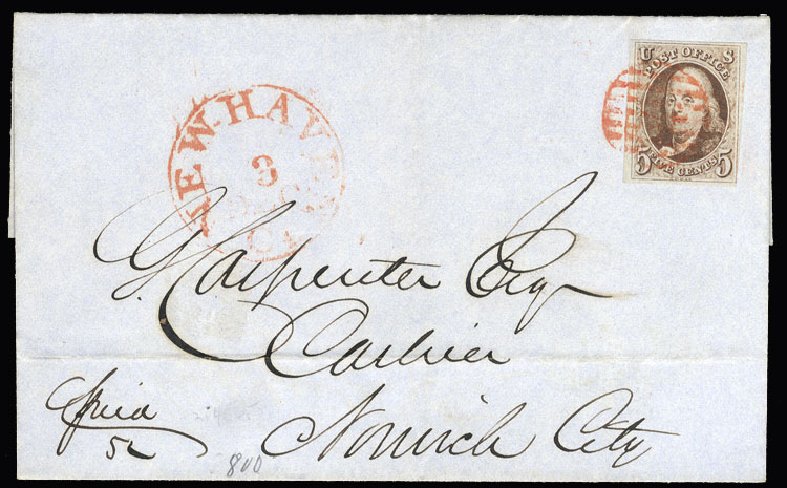 NEW-HAVEN
3
Ct
U S
POST OFFICE
5 FIVE CENTS 5
G. Carpenter Esq
Cashier
Norwich City
Paid
5
800